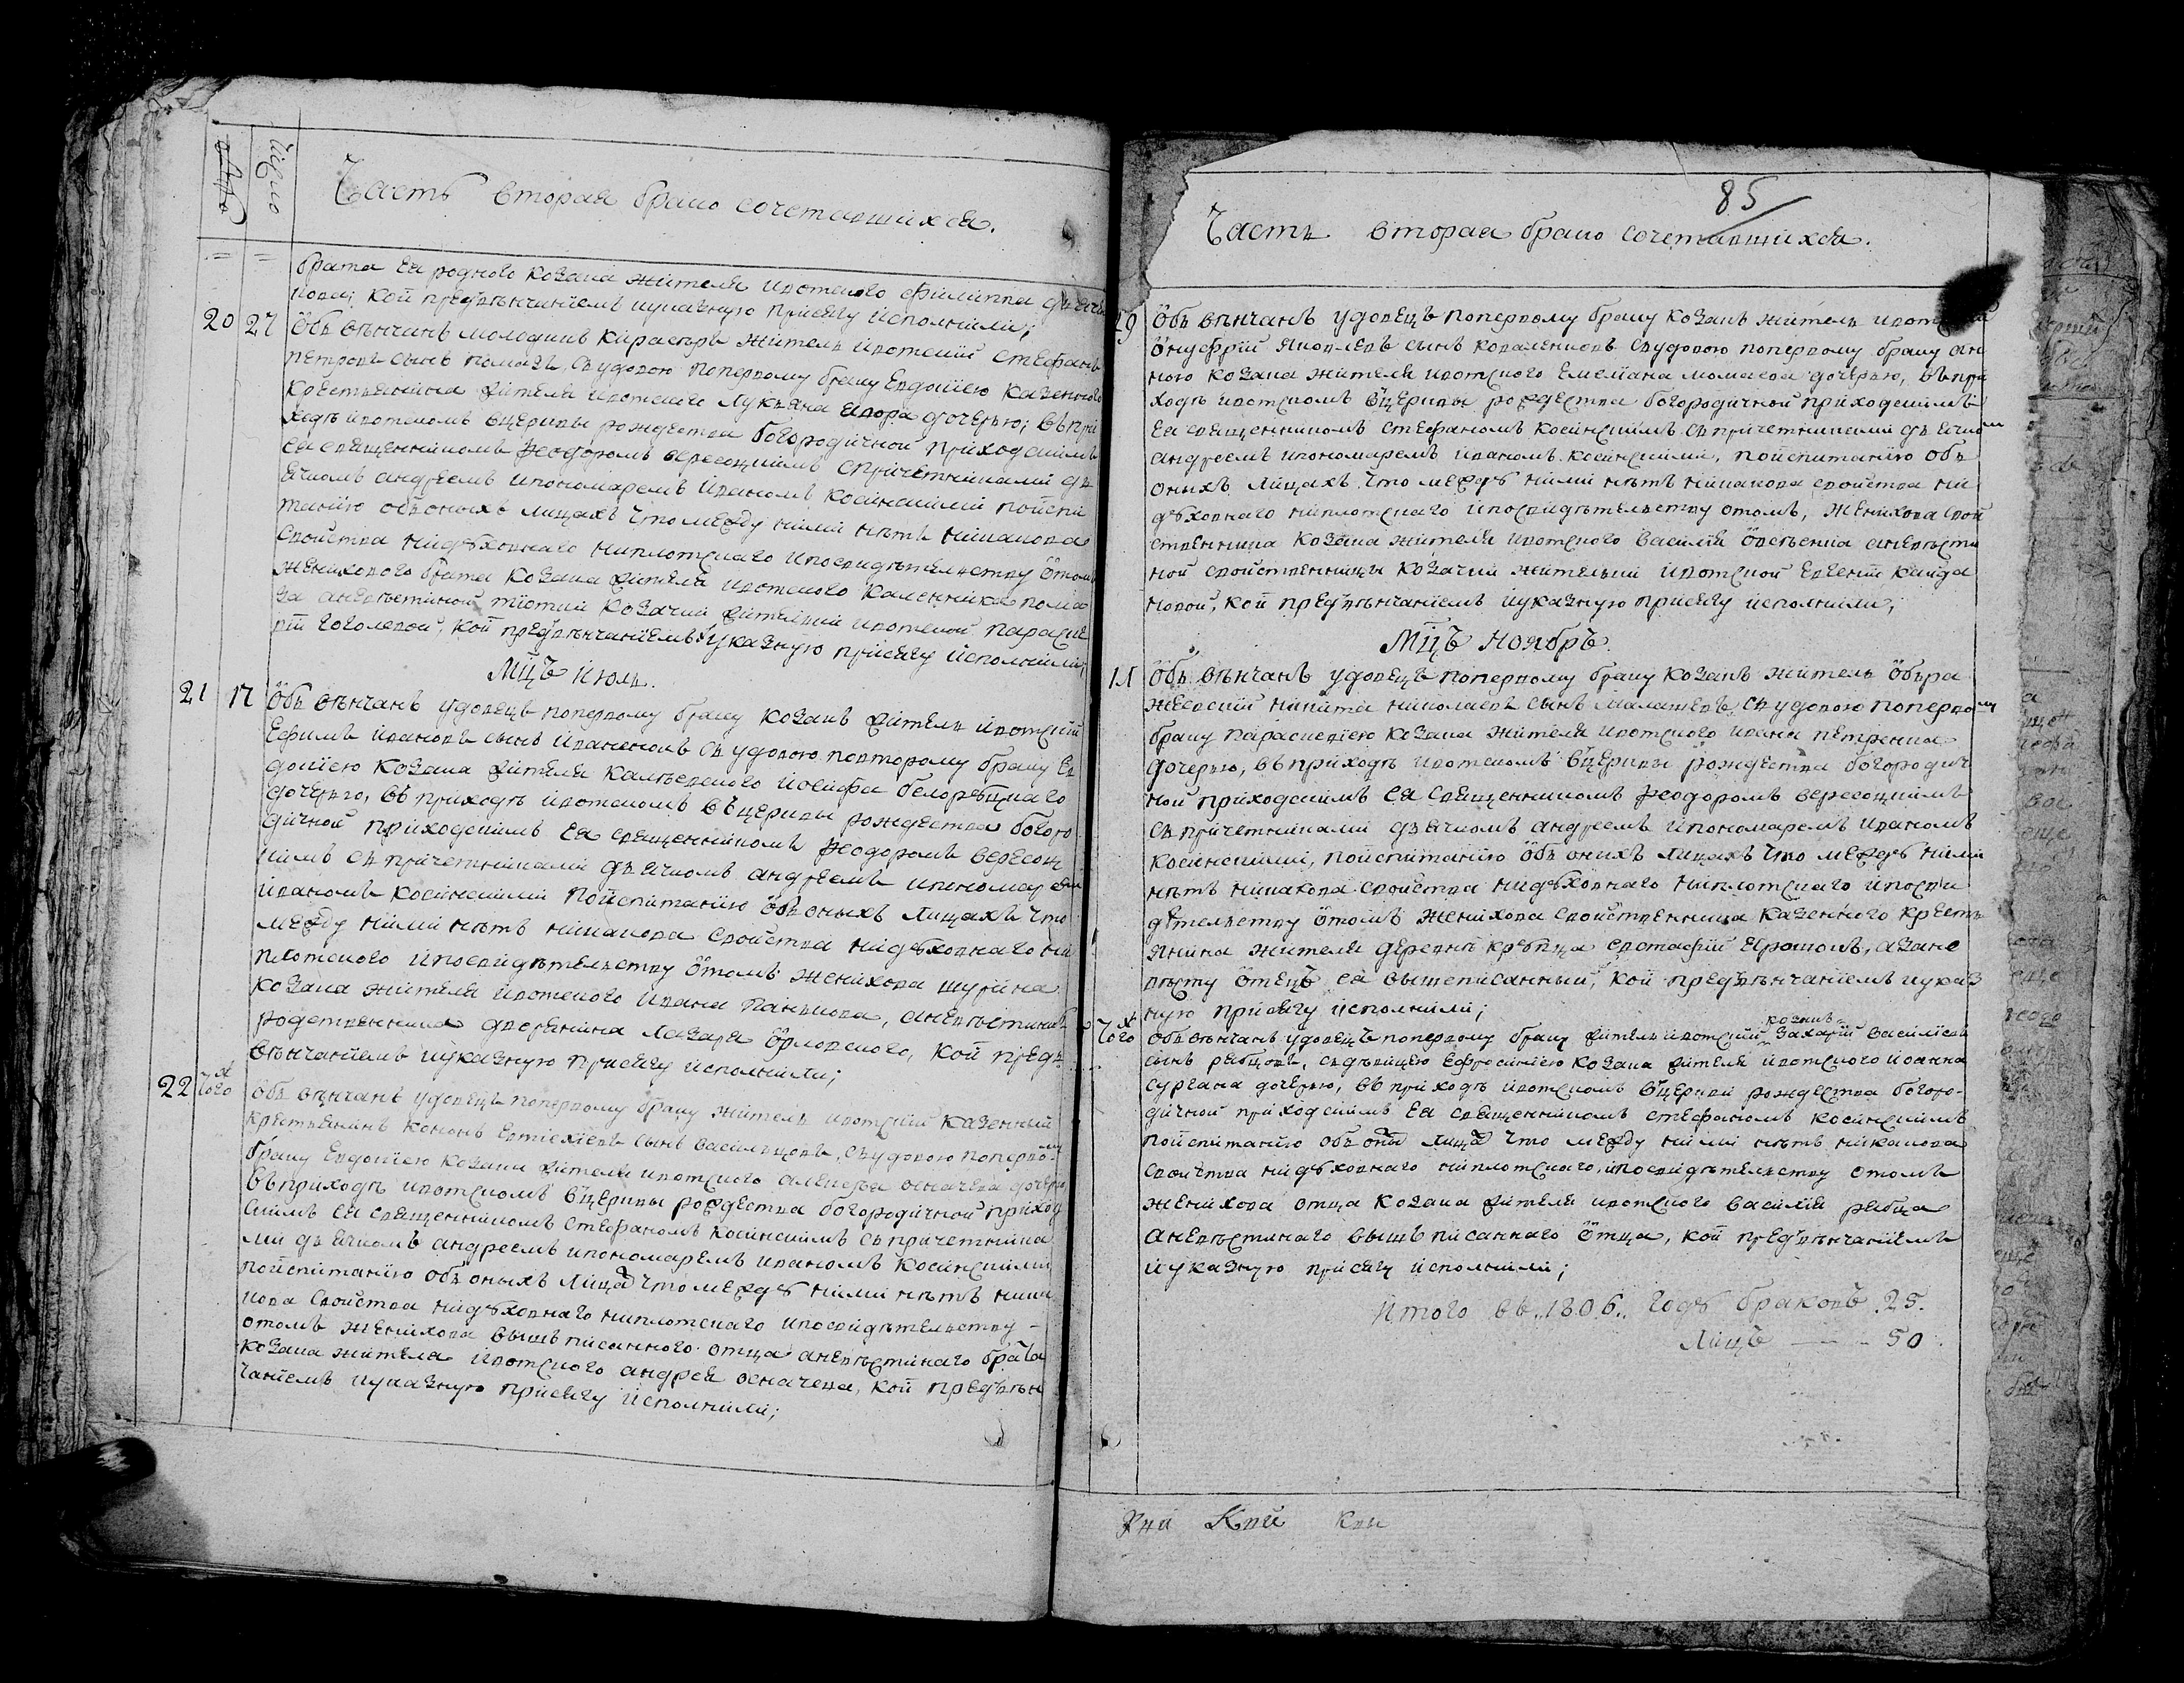 Число
Часть вторая брако сочетавшихся.
брата ея родного козака жителя ивотского филиппа
кои предвѣнчаніемъ иуказную присягу исполнили;
20 27 Обвѣнчанъ молодикъ кирасѣръ житель ивотский Стефанъ
петровъ сынъ помазъ, съудовою поперпому браку Евдокіею казенного
крестьянина жителя ивотского Лукъяна дочерью; въпри
ходѣ ивотскомъ вцеркви рождества богородичной приходскимъ
ея священникомъ Феодоромъ вересоцкимъ спричетниками дъ
ячкомъ андреемъ ипономаремъ иваномъ косинскими поиспи
танию объоныхъ лицахъ что между ними нѣтъ никакова
свойства нидуховнаго ниплотскаго ипосвидѣтельству отомъ
женихового брата козака жителя ивотского помаза
аневѣстиной тіотки козачки жителки ивотской параске
вии гоголевой, кои предвѣнчаніемъ иуказную присягу исполнили;
Мцъ июль.
21 17 Обвѣнчанъ удовецъ поперпому браку козакъ житель ивотский
Ефимъ ивановъ сынъ иваненокъ съ удовою повторому браку Ев
докіею козака жителя иосифа белорубцкаго
дочерью, въ приходѣ ивотскомъ въцеркви рождества богоро
дичной приходскимъ ея священникомъ Феодоромъ вересоц
кимъ съ причетниками дьячкомъ андреемъ ипономаремъ
иваномъ косинскими поиспитанию объоныхъ лицахъ что
между ними нѣтъ никакова свойства нидуховнаго ни
плотского ипосвидѣтельству отомъ женихова шурина
козака жителя ивотского ивана панькова, аневѣстина
родственника дворянина лазаря орловского, кои предъ
вѣнчаніемъ иуказную присягу исполнили;
22 Того ж обвѣнчанъ удовецъ поперпому браку житель ивотский казенный
крестьянинъ кононъ сынъ васильцовъ, съудовою поперпому
браку Евдокіею козака жителя ивотского алексѣя осначека дочерю
въприходѣ ивотскомъ вцеркви рождества богородичной приход
скимъ ея священникомъ стефаномъ косинскимъ съпричетника
ми дьячкомъ андреемъ ипономаремъ иваномъ косинскими
поиспитанию объ оныхъ лицах что между ними нѣтъ ника
кова свойства нидуховнаго ниплотскаго ипосвидѣтельству
отомъ женихова вышъ писанного отца аневѣстинаго брата
козака жителя ивотского андрея осначека, кои предвѣн
чаніемъ иуказную присягу исполнили;
85
Часть вторая брако сочетавшихся.
29 Обвѣнчанъ удовецъ поперпому браку козакъ житель
онуфрій яковлевъ сынъ коваленковъ съудовою поперпому браку ан
ною козака жителя ивотского Емелиана момасоа дочерью, въпри
ходѣ ивотскомъ вцеркви рождества богородичной приходскимъ
ея священникомъ стефаномъ косинскимъ съпричетниками дъячком
андреемъ ипономаремъ иваномъ косинскими, поиспитанию объ
оныхъ лицахъ что между ними нѣтъ никакова свойства ни
духовнаго ниплотскаго ипосвидѣтельству отомъ, женихова свой
ственника козака жителя ивотского василія аневѣсти
ной свойственницы козачки жителки ивотской Евгении кайда
новой, кои предвѣнчаніемъ иуказную присягу исполнили;
Мцъ Ноябръ.
11 Обвѣнчанъ удовецъ поперпому браку козакъ житель обра
жеевский никита николаевъ сынъ малашевъ, съудовою поперпому
браку параскевіею козака жителя ивотского ивана петренка
дочерью, въприходѣ ивотскомъ вцеркви рождества богородич
ной приходскимъ ея священникомъ Феодоромъ вересоцкимъ
съпричетниками дъячкомъ андреемъ ипономаремъ иваномъ
косинскими, поиспитанию объ онихъ лицахъ что между ними
нѣтъ никакова свойства нидуховнаго ниплотскаго ипосви
дѣтельству отомъ женихова свойственника казенного кресть
янина жителя деревнѣ крупца а зане
вѣсту отецъ ея вышеписанный, кои предвѣнчаніемъ иуказ
ную присягу исполнили;
Того ж обвѣнчанъ удовецъ поперпому браку житель ивотский козакъ захарій василіевъ
сынъ рябцовъ, съдѣвицею Ефросиніею козака жителя ивотского иоанна
сургана дочерью, въприходѣ ивотскомъ вцеркви рождества богоро-
дичной приходскимъ ея священникомъ стефаномъ косинскимъ
поиспитанию объ оных лицах что между ними нѣтъ никакова
свойства нидуховнаго ниплотскаго, ипосвидѣтельству отомъ
женихова отца козака жителя ивотского василія рябца
аневѣстинаго вышъ писаннаго отца, кои предвѣнчаніемъ
иуказную присягу исполнили;
Итого въ 1806. году браковъ. 25.
Лицъ — 50